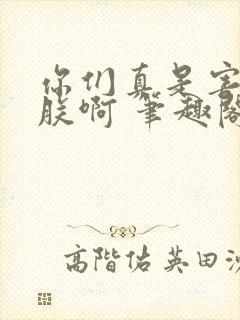 你们真是害
朕啊 笔趣阁
高階佑英田